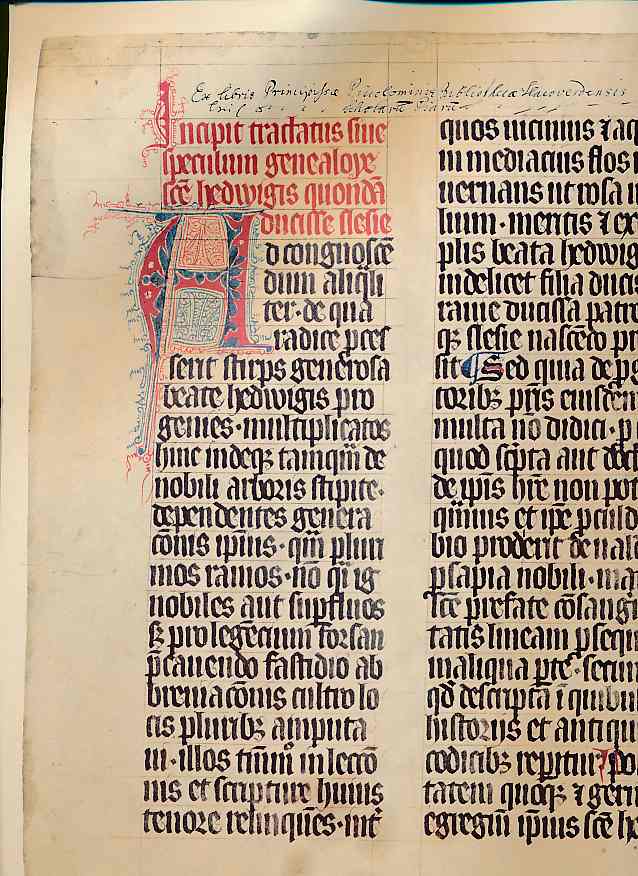 Ex libris Principissæ bibliothecæ Slacoverdensis
Scholarũ Piarũ
Incipit tractatus siue
speculum genealoye
scē hedwigis quondā
ducisse slesie
Ad congnoscē
dum aliq̄li
ter · de qua
radice p̄ces
serit stirps generosa
beate hedwigis pro
genies · multiplicatos
hinc indeqȝ tamq̄m de
nobili arboris stipite ·
dependentes genera
cōnis ip̄ius · q̄m pluri
mos ramos · nō q̄i ig
nobiles aut sup̄fluos
sȝ pro legēcium forsan
p̄cauendo fastidio ab
breuiacōnis cultro lo
cis pluribȝ amputa
ui · illos tm̄ in leccō
nis et scripture huius
tenore relinquēs · int̄
quos uicinius ⁊ ac
in mediacius flos
uernans ut rosa
lium · meritis ⁊ ex
plis beata hedwig
uidelicet filia ducis
ranie ducissa patre
qȝ slesie nascēdo p̄
sit Sed quia de p̄
toribȝ p̄ris eiusdem
multa nō didici · p
quod scp̄ta aut
de ip̄is hr̄e non pot
q̄nimis et ip̄e
bio proderit de
psapia nobili · ma
scē prefate cōsang
tatis lineam psequ
in aliqua pte · secun
qd̄ descripta ī quibu
historijs et antiqu
codicibȝ repitur po
tatem quoqȝ ⁊ gen
egregiū ip̄ius scē he